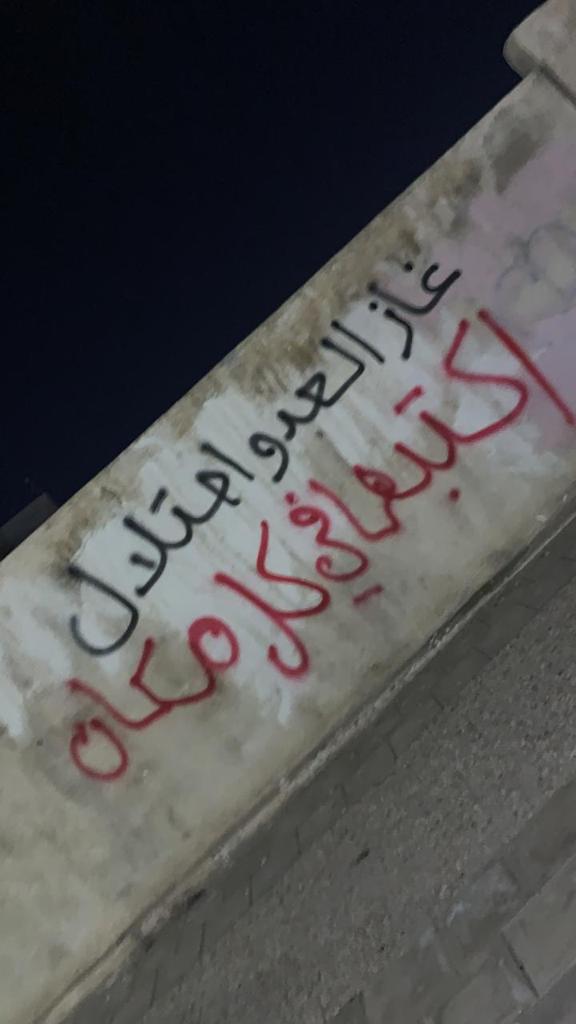 غاز العدو احتلال
اكتبها في كل مكان